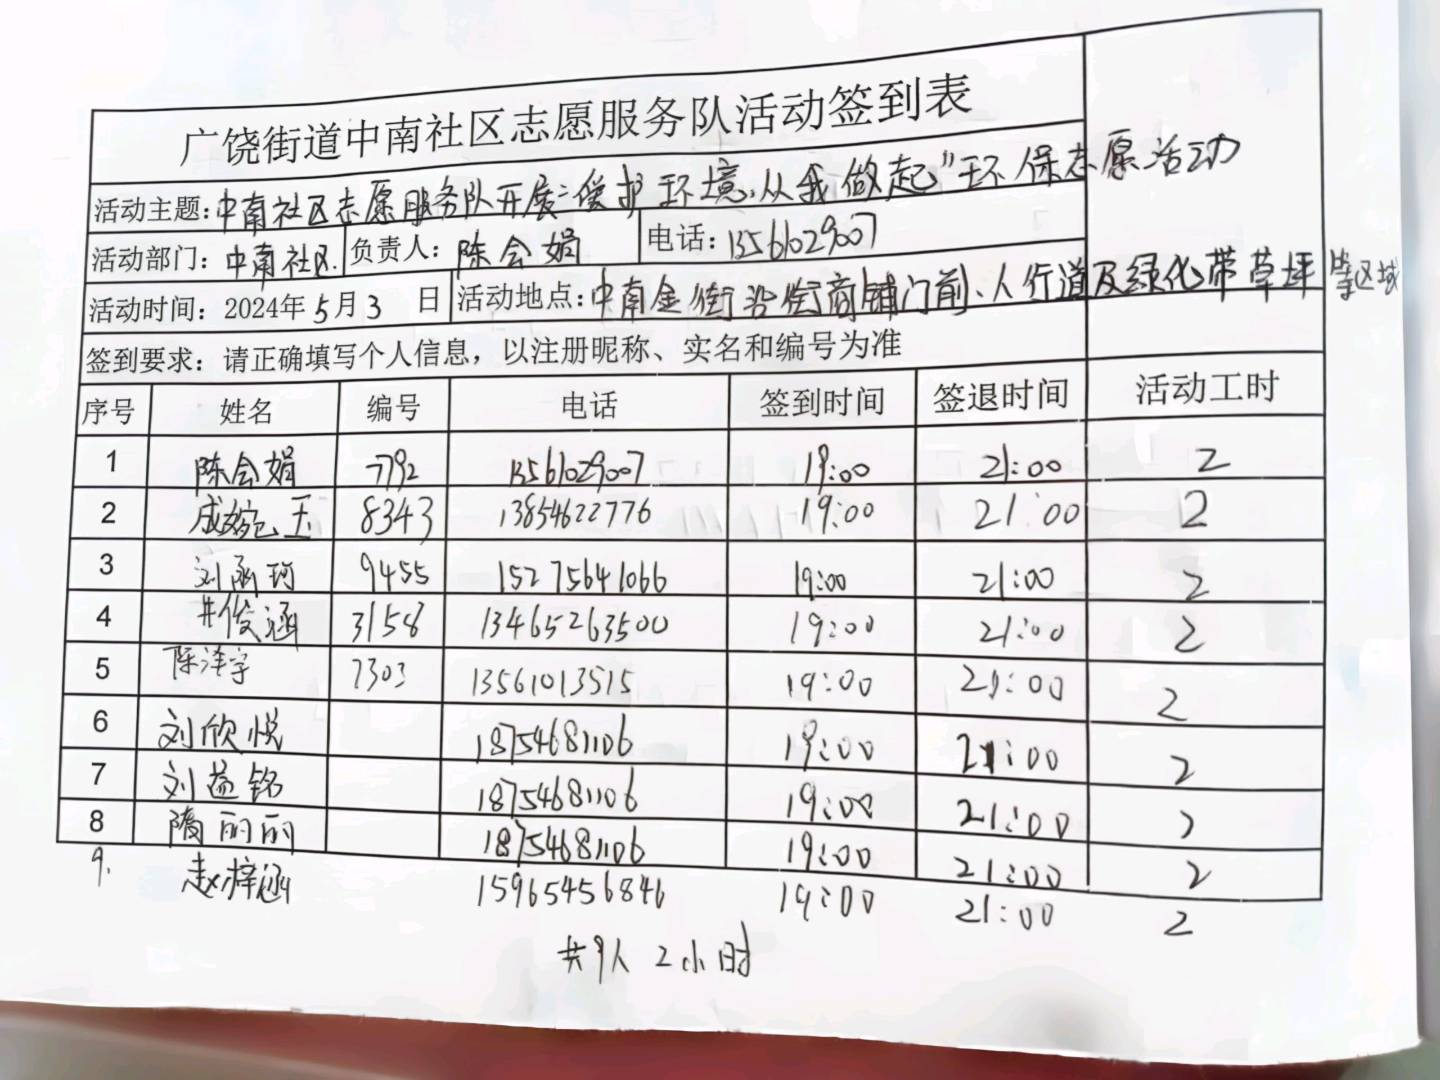 广饶街道中南社区志愿服务队活动签到表
活动主题：中南社区志愿服务队开展“爱护环境、从我做起”环保志愿活动
活动部门：中南社区 负责人：陈会娟 电话：13561029007
活动时间：2024年5月3日 活动地点：中南金街沿街商铺门前、人行道及绿化带草坪等区域
签到要求：请正确填写个人信息，以注册昵称、实名和编号为准
序号 姓名 编号 电话 签到时间 签退时间 活动工时
1 陈会娟 7792 13561029007 19:00 21:00 2
2 成婉玉 8343 13854622776 19:00 21:00 2
3 刘函珂 9455 15275641066 19:00 21:00 2
4 井俊涵 3158 13465263500 19:00 21:00 2
5 陈泽宇 7303 13561013515 19:00 21:00 2
6 刘欣悦 18754681106 19:00 21:00 2
7 刘益铭 18754681106 19:00 21:00 2
8 隋丽丽 18754681106 19:00 21:00 2
9. 赵梓涵 15965456846 19:00 21:00 2
共9人 2小时